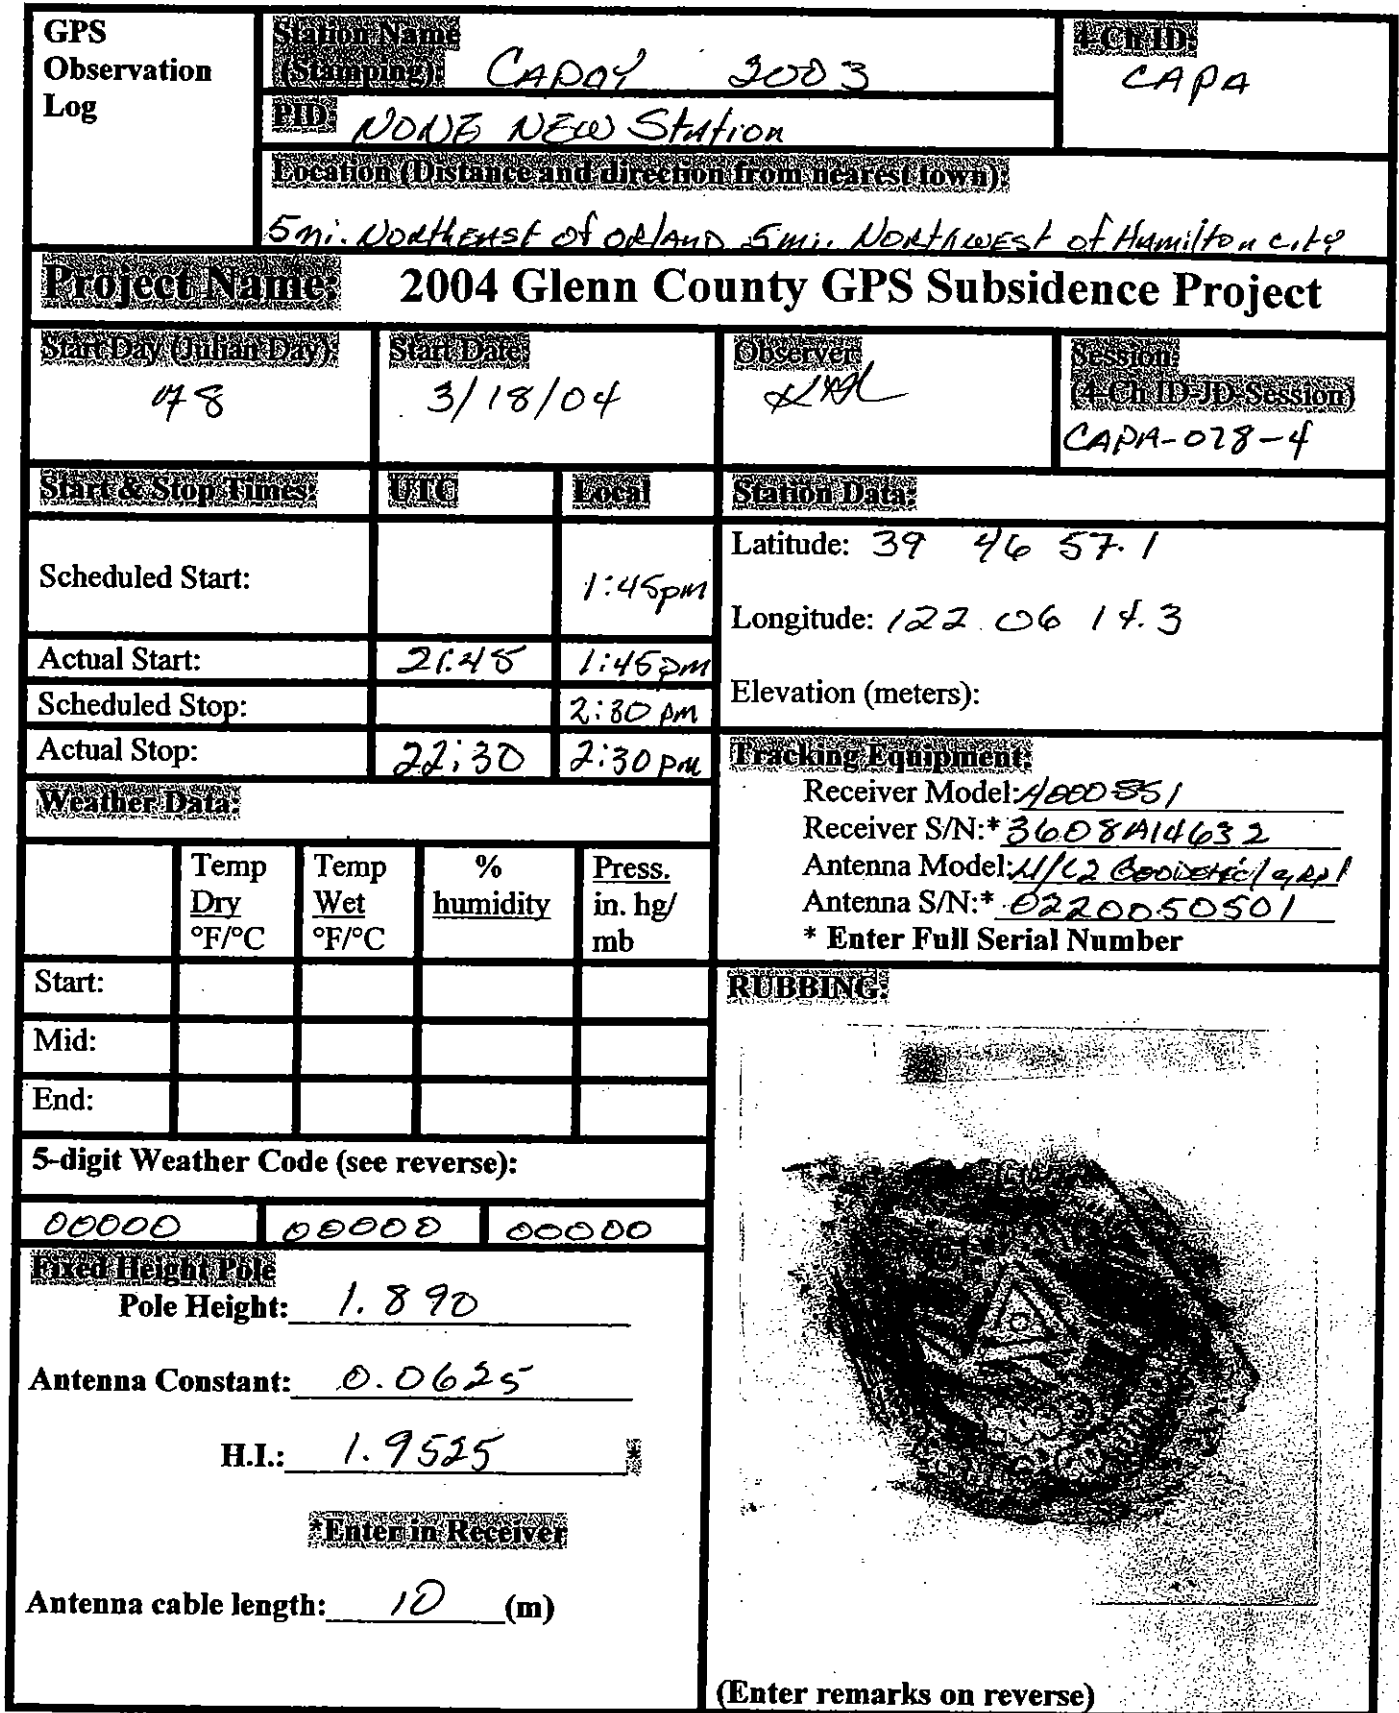 GPS
Observation
Log
Station Name
(Stamping): CAPAY 2003
4-Ch ID:
CAPA
PID: NONE NEW Station
Location (Distance and direction from nearest town):
5 mi. Northeast of orland 5 mi. Northwest of Hamilton city
Project Name: 2004 Glenn County GPS Subsidence Project
Start Day (Julian Day):
78
Start Date:
3/18/04
Observer:
Session:
(4-Ch ID-JD-Session)
CAPA-078-4
Start & Stop Times: UTC Local
Scheduled Start: 1:45pm
Actual Start: 21:45 1:45pm
Scheduled Stop: 2:30 pm
Actual Stop: 22:30 2:30 pm
Station Data:
Latitude: 39 46 57.1
Longitude: 122 06 14.3
Elevation (meters):
Tracking Equipment:
Receiver Model:
Receiver S/N:* 3608A14632
Antenna Model: L1/L2 Geodetic/
Antenna S/N:* 0220050501
* Enter Full Serial Number
Weather Data:
Temp
Dry
°F/°C
Temp
Wet
°F/°C
%
humidity
Press.
in. hg/
mb
Start:
Mid:
End:
5-digit Weather Code (see reverse):
00000 00000 00000
Fixed Height Pole
Pole Height: 1.890
Antenna Constant: 0.0625
H.I.: 1.9525 *
*Enter in Receiver
Antenna cable length: 10 (m)
RUBBING:
(Enter remarks on reverse)